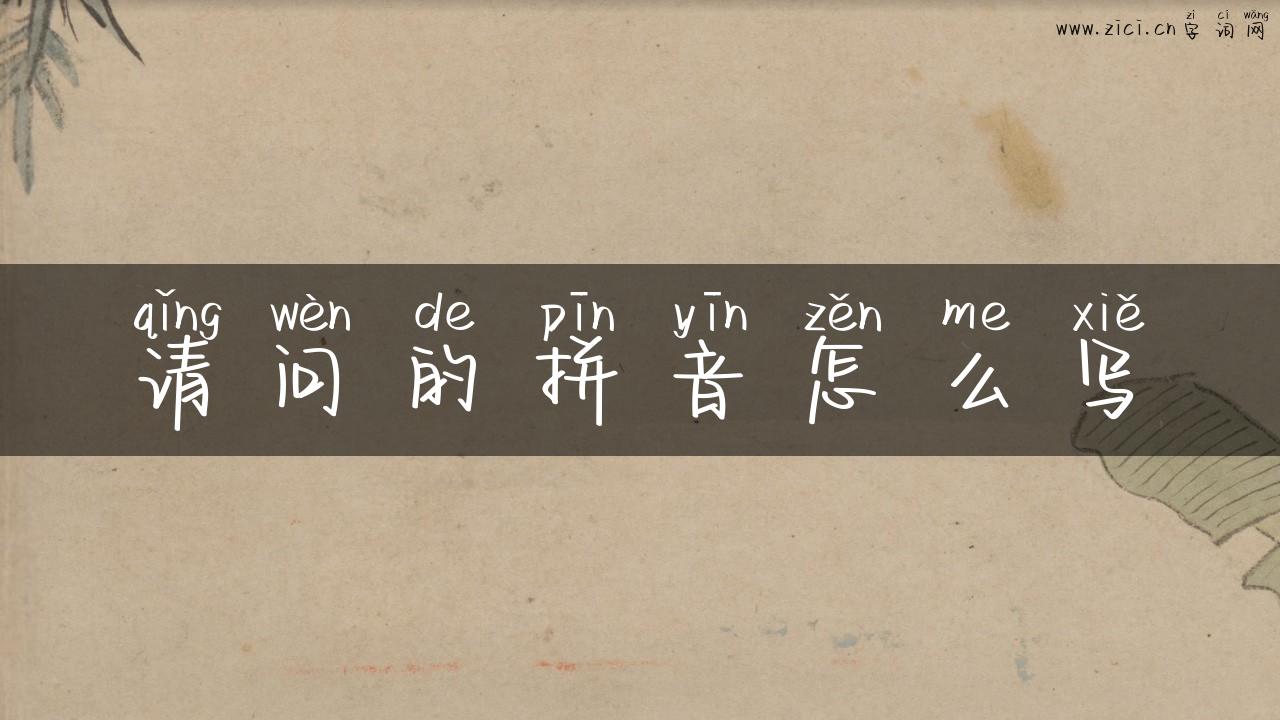 zì cí wǎng
www.zici.cn 字 词 网
qǐng wèn de pīn yīn zěn me xiě
请 问 的 拼 音 怎 么 写